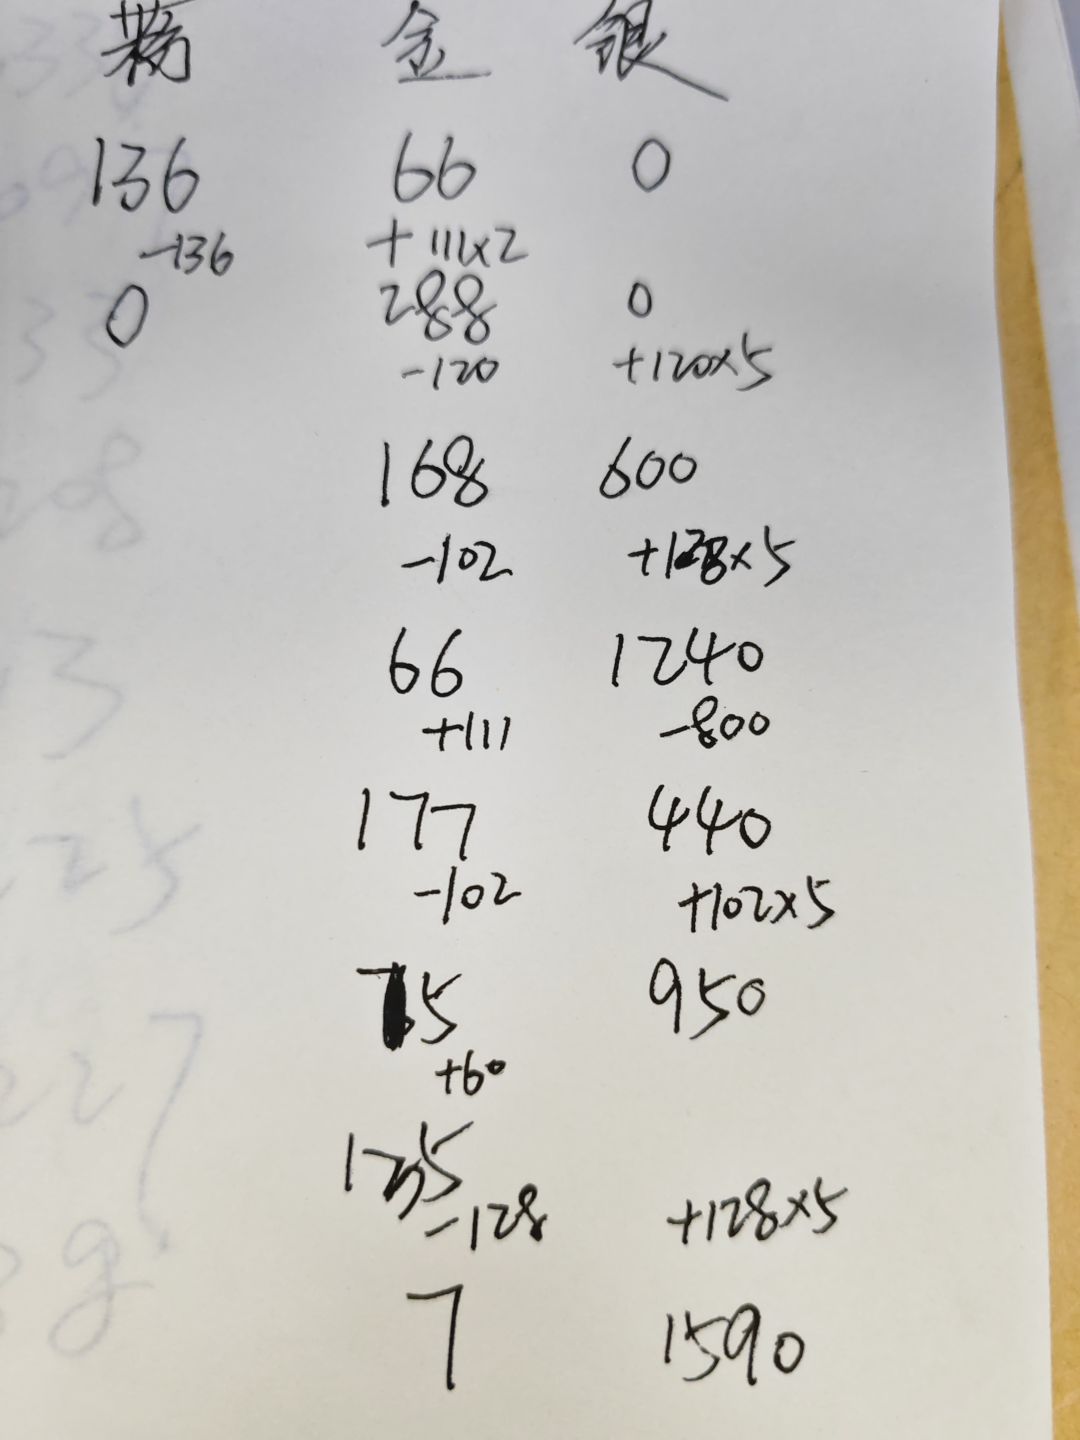 金 银
136 66 0
-136 +111×2
0 288 0
-120 +120×5
168 600
-102 +128×5
66 1240
+111 -800
177 440
-102 +102×5
75 950
+60
135
-128 +128×5
7 1590